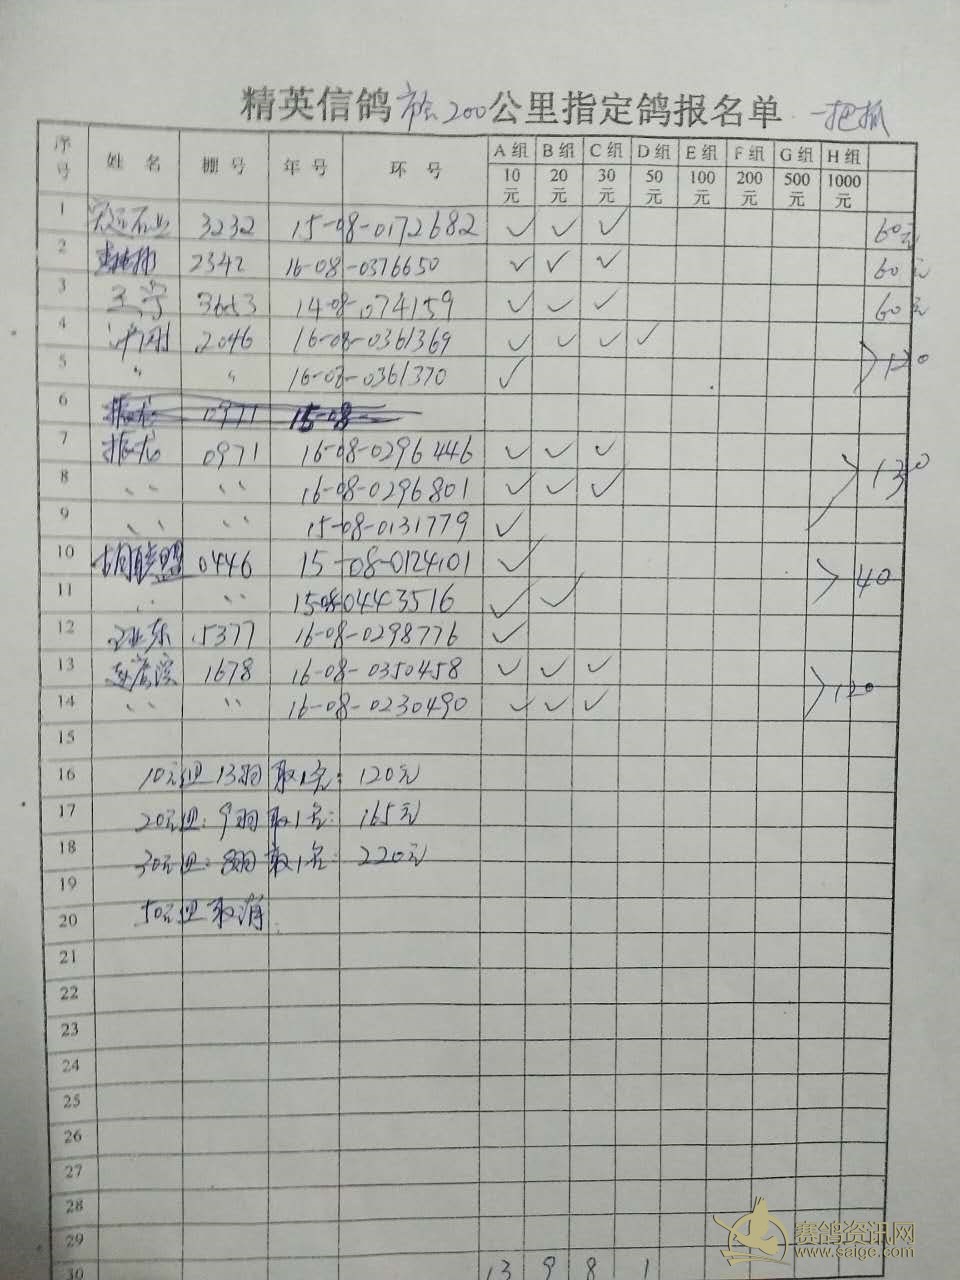 精英信鸽 市会200 公里指定鸽报名单 一把抓
序号 姓名 棚号 年号 环号 A组 B组 C组 D组 E组 F组 G组 H组
10元 20元 30元 50元 100元 200元 500元 1000元
1 3232 15-08-0172682 ✓ ✓ ✓ 60元
2 2342 16-08-0376650 ✓ ✓ ✓ 60元
3 王宁 3653 14-08-074159 ✓ ✓ ✓ 60元
4 2046 16-08-0361369 ✓ ✓ ✓ ✓
5 〃 〃 16-08-0361370 ✓ 120
6 振龙 0971 15-08-
7 振龙 0971 16-08-0296446 ✓ ✓ ✓
8 〃 〃 16-08-0296801 ✓ ✓ ✓ 130
9 〃 〃 15-08-0131779 ✓
10 联盟 0446 15-08-0124101 ✓
11 〃 〃 15-08-0443516 ✓ ✓ 40
12 5377 16-08-0298776 ✓
13 1678 16-08-0350458 ✓ ✓ ✓
14 〃 〃 16-08-0230490 ✓ ✓ ✓ 120
15
16 10元组 13羽 取1名: 120元
17 20元组: 9羽 取1名: 165元
18 30元组: 8羽 取1名: 220元
19
20 50元组 取消
21
22
23
24
25
26
27
28
29
30 13 9 8 1
赛鸽资讯网
www.saigc.com